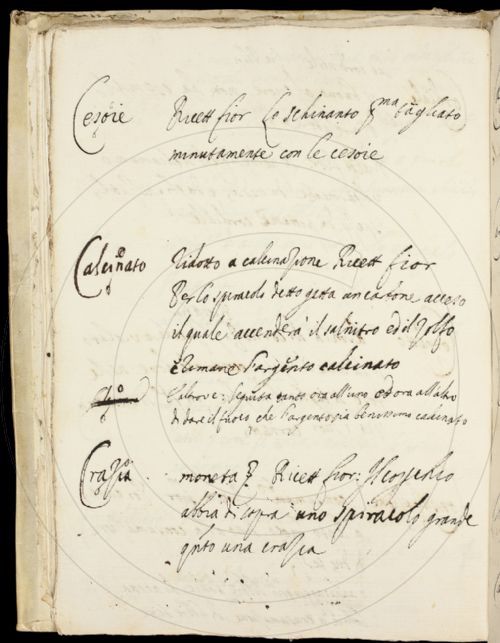 Cesoie Ricett fior Lo schinanto pma tagliato
minutamente con le cesoie
Calcinato Ridotto a calcinazione Ricett fior
Per lo spiracolo detto getta un carbone acceso
il quale accenderà il salnitro ed il zolfo
e rimane l'argento calcinato
Ealtrove: seguita tanto ora all'uno ed ora all'altro
di dare il fuoco che l'argento sia benissimo calcinato
Crazia moneta Ricett fior: Il coperchio
abbia di sopra uno spiracolo grande
qnto una crazia